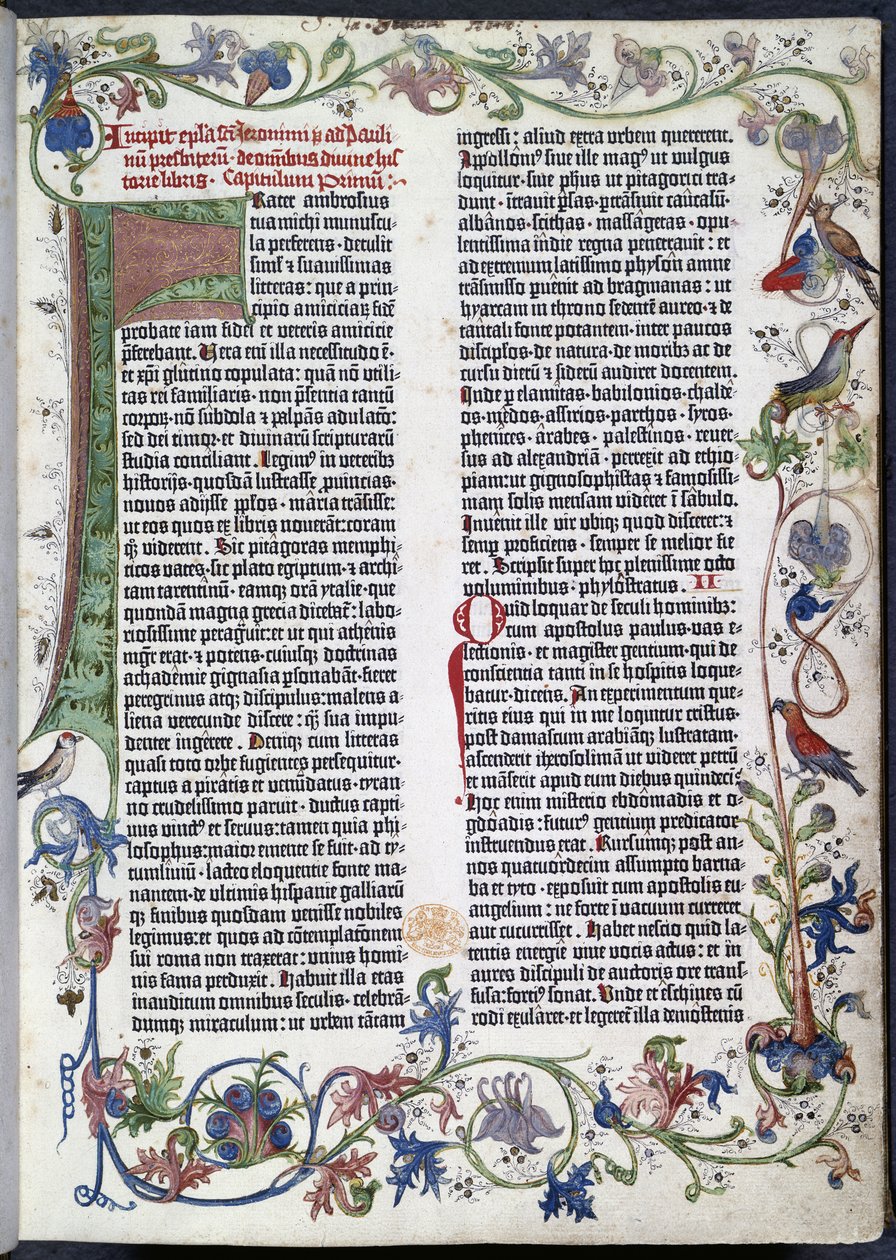 Incipit epl̃a sc̃i Jeronimi p̃ ad Pauli-
nū presbiterū · de om̄ibus diuine his-
torie libris · Capitulum Primū :·
Frater ambrosius
tua michi munuscu-
la perferens · detulit
siml̕ ⁊ suauissimas
litteras : que a prin-
cipio amiciciaꝝ fidē
probate iam fidei et veteris amicicie
p̄ferebant. Vera em̄ illa necessitudo ē·
et xp̄i glutino copulata : quā nō utili-
tas rei familiaris · non p̄sentia tantū
corporꝝ · nō subdola ⁊ palpās adulatō:
sed dei timor · et diuinarū scripturarū
studia conciliant . Legimꝰ in veteribꝫ
historijs · quosdā lustrasse ꝓuincias·
nouos adijsse ppl̄os · mâria trâsisse:
ut eos quos ex libris nouerāt : coram
qꝫ viderent . Sic pitâgoras memphi-
ticos vates · sic plato egiptum · ⁊ archi-
tam tarentinū · eamqꝫ orā ytalie · que
quondā magna grecia dicebaṫ : labo-
riosissime peragͬuit : et ut qui athênis
mgr̄ erat · ⁊ potens · cuiusqꝫ doctrinas
achadêmie gignasia ꝑsonabāt · fieret
peregrinus atqꝫ discipulus : malens a-
liena verecunde discere : qͣꝫ sua impu-
denter ingêrere . Deniqꝫ cum litteras
quasi toto orbe fugientes persequitur·
captus a pirâtis et venūdatus · tyran-
no crudelissimo paruit · ductus capti-
uus vinctꝰ et seruus : tamen quia phi-
losophus : maior emente se fuit · ad ty-
tumliuiū · lacteo eloquentie fonte ma-
nantem · de ultimis hispanie galliarū
qꝫ finibus quosdam venisse nobiles
legimus : et quos ad cōtemplacōnem
sui roma non traxerat : unius homi-
nis fama perduxit . Habuit illa etas
inauditum omnibus seculis · celebrā-
dumqꝫ miraculum : ut urbem tātam
ingressi : aliud extra urbem quererent.
Apollôniꝰ siue ille magꝰ ut vulgus
loquitur · siue ph̄us ut pitagorici tra-
dunt · ītrauit p̄sas · ꝑtrāsiuit caûcasū·
albânos · scithas · massâgetas · opu-
lentissima īndie regna penetrauit : et
ad extremum latissimo physôn amne
trāsmisso puênit ad bragmanas : ut
hyarcam in throno sedentē aureo · ⁊ de
tantali fonte potantem · inter paucos
discipl̄os · de natura · de moribꝫ ac de
cursu dierū ⁊ siderū audiret docentem.
Inde ꝑ elamitas · babilonios · chaldê-
os · mêdos · assirios · parthos · syros·
phenices · ârabes · palestînos · reuer-
sus ad alexandriā · perrexit ad ethio-
piam : ut gignosophistas ⁊ famosissi-
mam solis mensam vidêret ī sâbulo.
Inuênit ille vir vbiqꝫ quod disceret : ⁊
semꝑ proficiens · semper se melior fie-
ret . Scripsit super hoc plenissime octo
voluminibus · phylôstratus . II
Quid loquar de seculi hominibꝫ:
cum apostolus paulus · vas e-
lectionis · et magister gentium · qui de
conscientia tanti in se hospitis loque-
batur · dicens . An experimentum que-
ritis eius qui in me loquitur cristus·
post damascum arabiāqꝫ lustratam·
ascenderit iherosolimā ut videret petrū
et māserit apud eum diebus quindeci·
Hoc enim misterio ebdômadis et o-
gdôadis : futurꝰ gentium predicator
instruendus erat . Rursumqꝫ post an-
nos quatuôrdecim assumpto barna-
ba et tyto · exposuit cum apostolis eu-
angelium : ne forte ī vacuum curreret
aut cucurrisset . Habet nescio quid la-
tentis energîe viue vocis actus : et in
aures discipuli de auctoris ore trans-
fusa : fortiꝰ sonat . Vnde et eschines cū
rodi exularet · et legeretͬ illa demôstenis